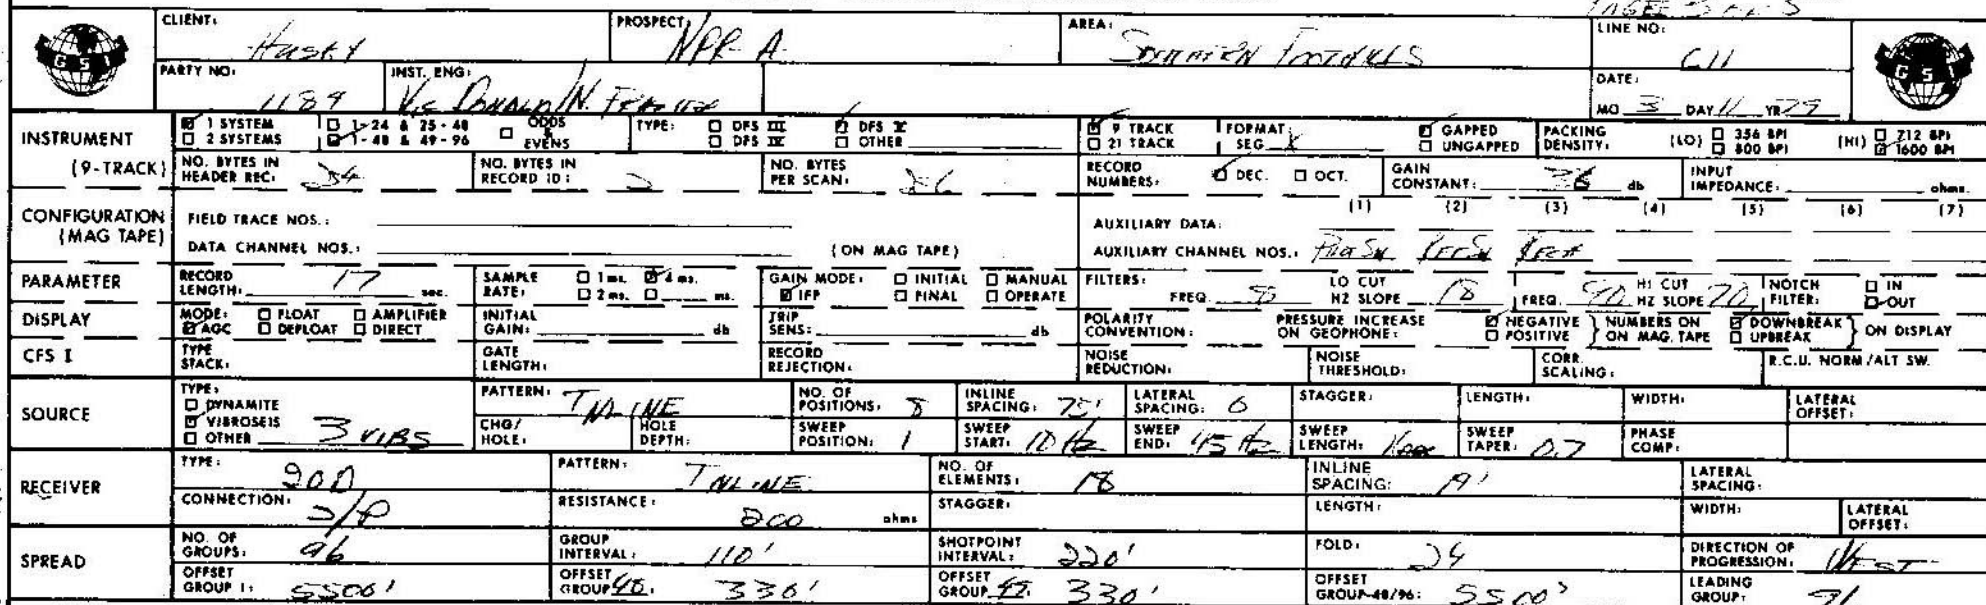 CLIENT: Husky PROSPECT: NPR A AREA: SOUTHERN FOOTHILLS LINE NO: 611
GSI GSI
PARTY NO: 1189 INST. ENG: Vic DONALD/N. DATE: MO 3 DAY 11 YR 79
INSTRUMENT (9-TRACK) 1 SYSTEM 2 SYSTEMS 1-24 & 25-48 1-48 & 49-96 ODDS & EVENS TYPE: DFS III DFS IV DFS V OTHER 9 TRACK 21 TRACK FORMAT: SEG GAPPED UNGAPPED PACKING DENSITY: (LO) 356 BPI 800 BPI (HI) 712 BPI 1600 BPI
NO. BYTES IN HEADER REC: NO. BYTES IN RECORD ID: NO. BYTES PER SCAN: RECORD NUMBERS: DEC. OCT. GAIN CONSTANT: 36 db INPUT IMPEDANCE: ohms.
CONFIGURATION (MAG TAPE) FIELD TRACE NOS.: AUXILIARY DATA: (1) (2) (3) (4) (5) (6) (7)
DATA CHANNEL NOS.: (ON MAG TAPE) AUXILIARY CHANNEL NOS.:
PARAMETER RECORD LENGTH: 17 sec. SAMPLE RATE: 1 ms. 2 ms. 4 ms. ms. GAIN MODE: IFP INITIAL FINAL MANUAL OPERATE FILTERS: FREQ. 8 LO CUT HZ SLOPE 18 FREQ. 90 HI CUT HZ SLOPE 70 NOTCH FILTER: IN OUT
DISPLAY MODE: AGC FLOAT DEFLOAT AMPLIFIER DIRECT INITIAL GAIN: db TRIP SENS: db POLARITY CONVENTION: PRESSURE INCREASE ON GEOPHONE: NEGATIVE POSITIVE NUMBERS ON ON MAG. TAPE DOWNBREAK UPBREAK ON DISPLAY
CFS I TYPE STACK: GATE LENGTH: RECORD REJECTION: NOISE REDUCTION: NOISE THRESHOLD: CORR. SCALING: R.C.U. NORM/ALT SW.
SOURCE TYPE: DYNAMITE VIBROSEIS OTHER 3 VIBS PATTERN: INLINE NO. OF POSITIONS: 8 INLINE SPACING: 75' LATERAL SPACING: 0 STAGGER: LENGTH: WIDTH: LATERAL OFFSET:
CHG/ HOLE: HOLE DEPTH: SWEEP POSITION: 1 SWEEP START: 10 Hz SWEEP END: 45 Hz SWEEP LENGTH: SWEEP TAPER: 0.7 PHASE COMP:
RECEIVER TYPE: 20D PATTERN: INLINE NO. OF ELEMENTS: 18 INLINE SPACING: 19' LATERAL SPACING:
CONNECTION: S/P RESISTANCE: 200 ohms STAGGER: LENGTH: WIDTH: LATERAL OFFSET:
SPREAD NO. OF GROUPS: 96 GROUP INTERVAL: 110' SHOTPOINT INTERVAL: 220' FOLD: 24 DIRECTION OF PROGRESSION: WEST
OFFSET GROUP 1: 5500' OFFSET GROUP 48: 330' OFFSET GROUP 49: 330' OFFSET GROUP 48/96: 5500' LEADING GROUP: